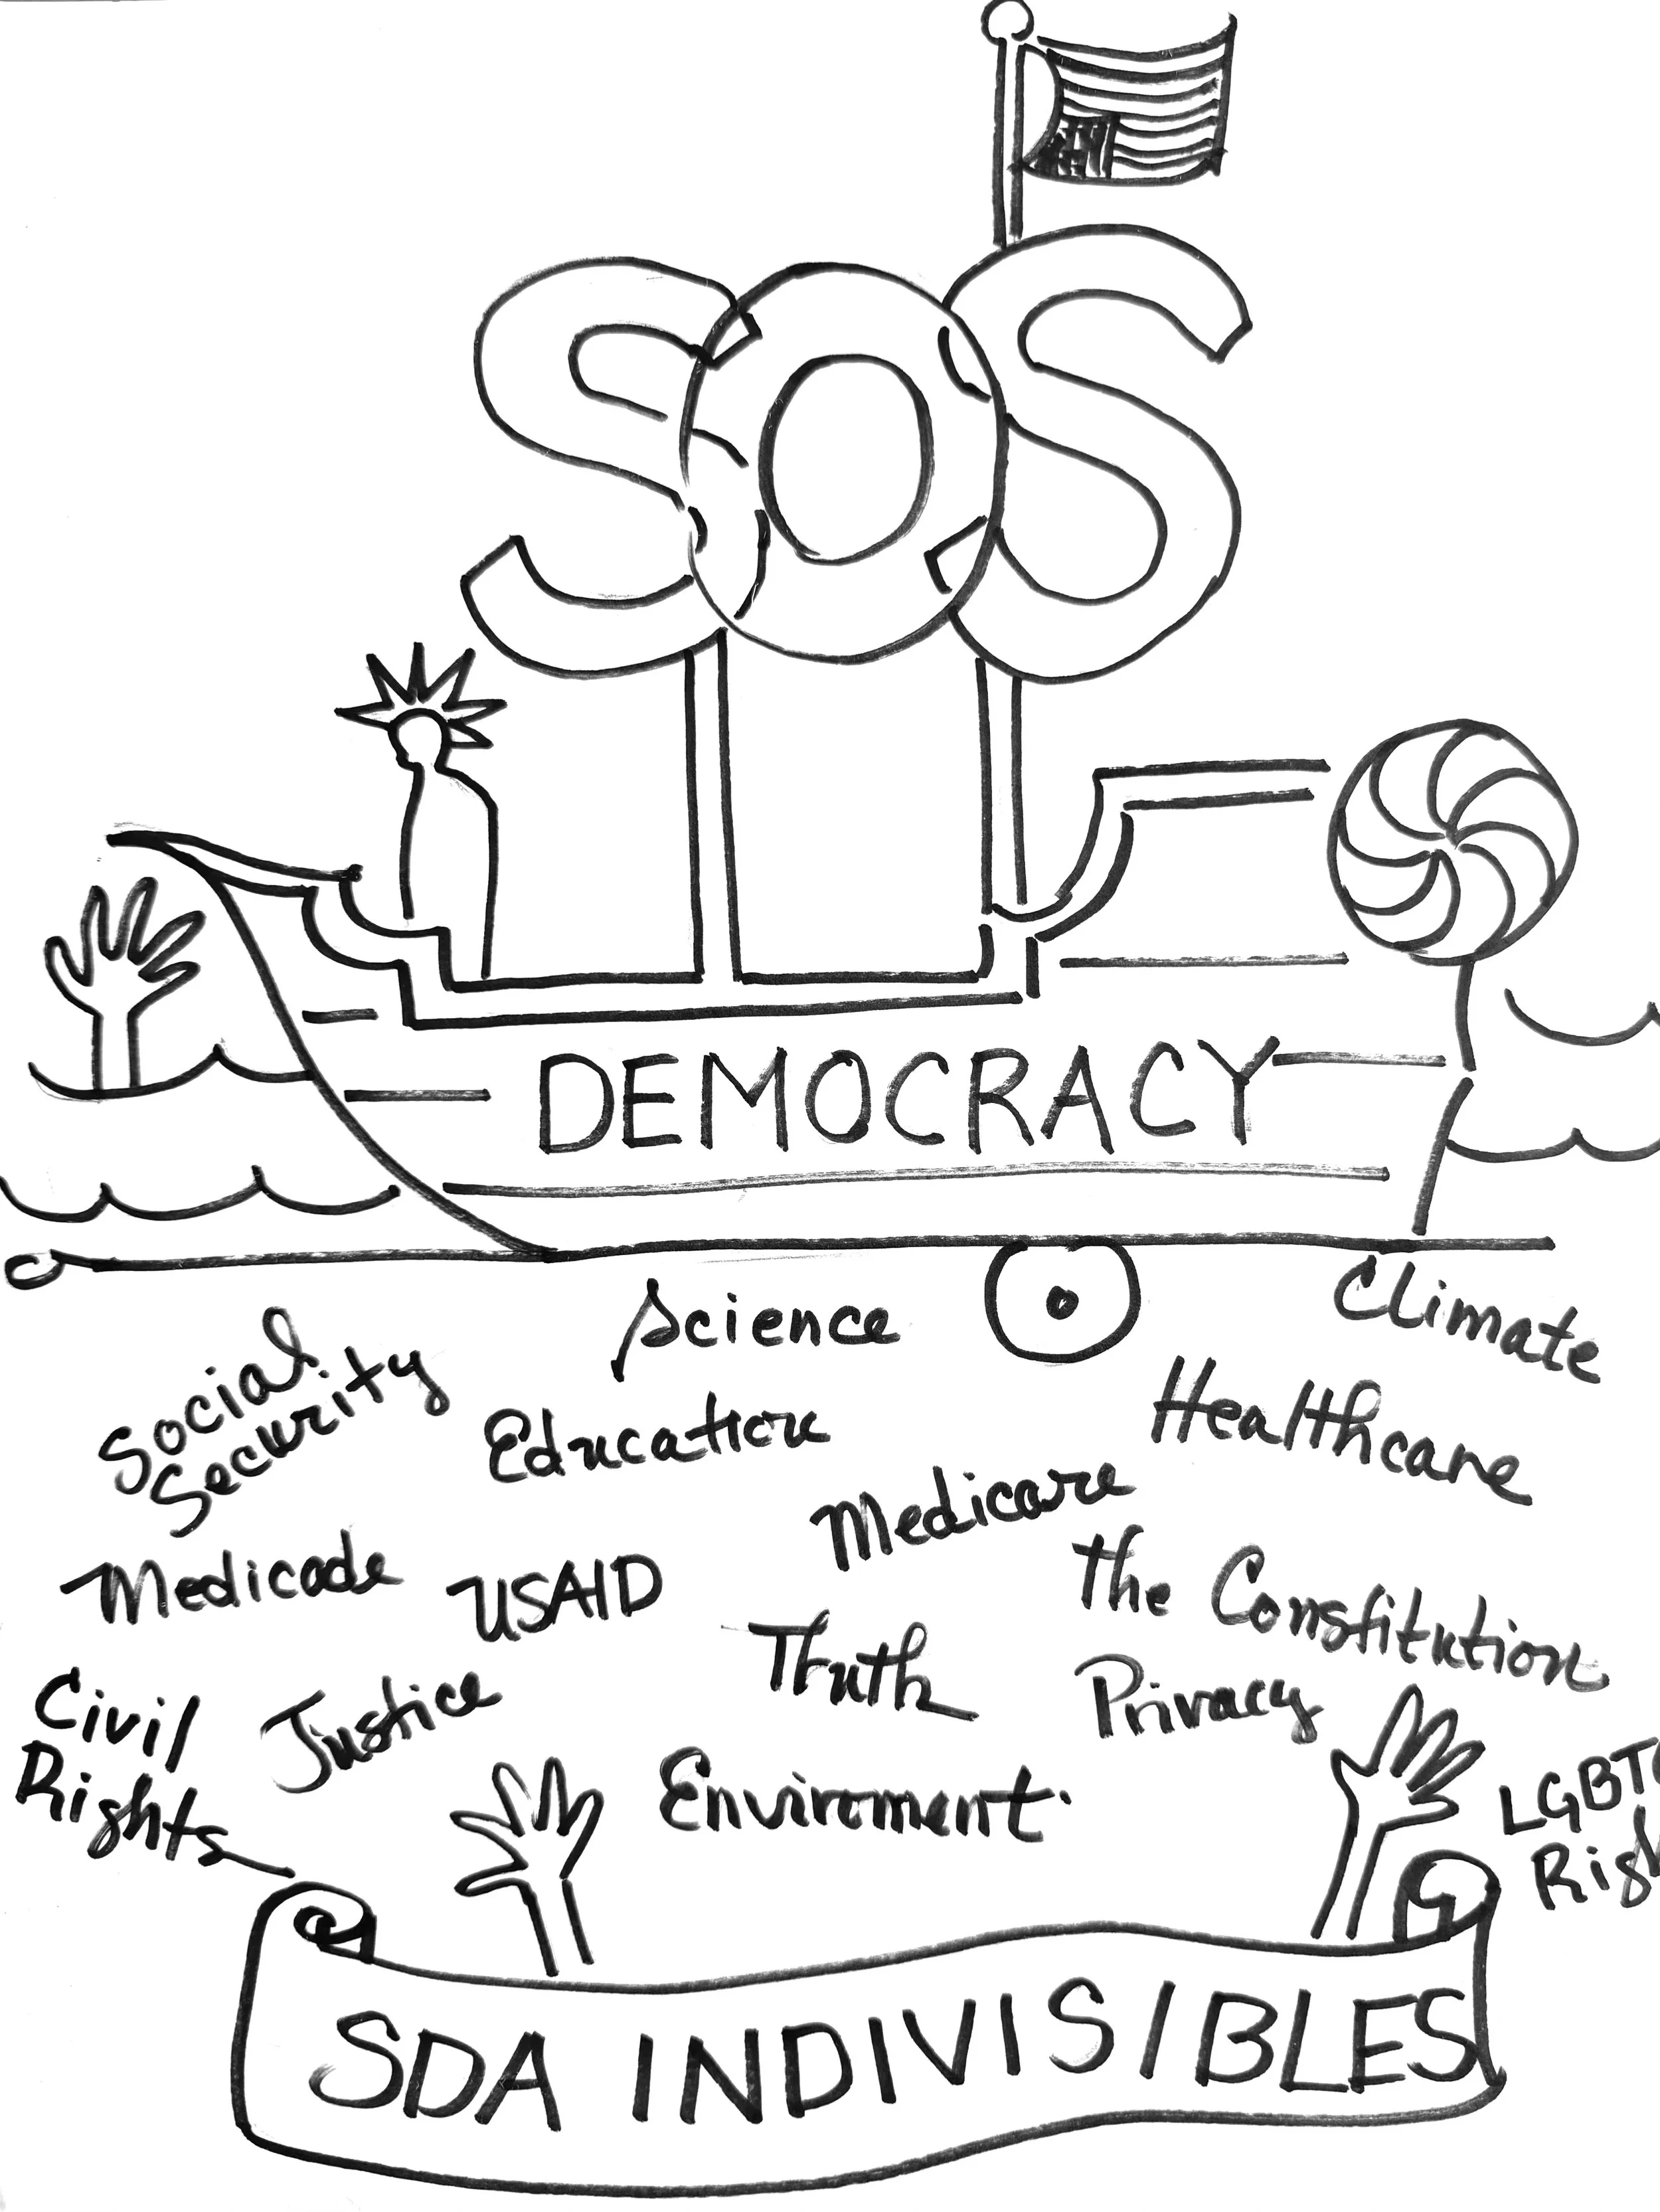 SOS
DEMOCRACY
Science
Climate
Social
Security
Education
Healthcare
Medicare
Medicade
USAID
The Constitution
Truth
Privacy
Civil
Rights
Justice
Enviroment
SDA INDIVISIBLES